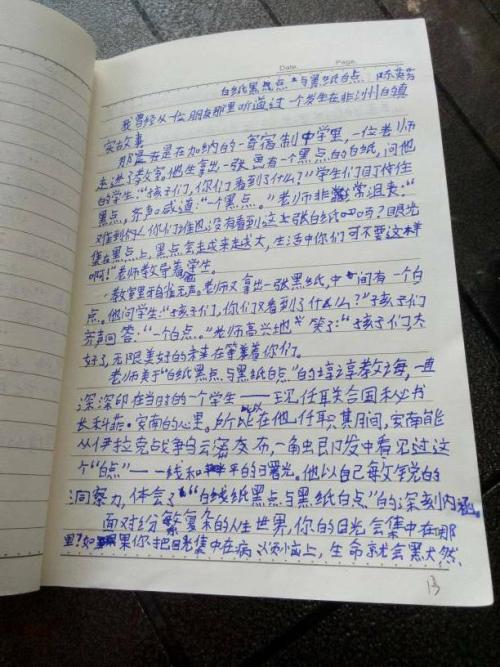 Date. Page.
白纸黑点与黑纸白点 陈英芳
我曾经从一位朋友那里听过一个发生在非洲白镇
实故事
那是在加纳的一寄宿制中学里,一位老师
走进了教室,他先拿出一张画有一个黑点的白纸,问他
的学生:“孩子们,你们看到了什么?”学生们盯住
黑点,齐声喊道:“一个黑点。”老师非常沮丧:“
难到你们谁也没有看到这张白纸吗?眼光
集在黑点上,黑点会越来越大,生活中你们可不要这样
啊!”老师教导着学生。
教室里鸦雀无声。老师又拿出一张黑纸,中间有一个白
点。他问学生:“孩子们,你们又看到了什么?”孩子们
齐声回答:“一个白点。”老师高兴地笑了:“孩子们太
好了,无限美好的未来在等着你们。
老师关于“白纸黑点与黑纸白点”的谆谆教诲,一直
深深印在当时的一个学生——现任联合国秘书
长科菲·安南的心里。所以在他任职其间,安南能
从伊拉克战争乌云密布,一角虫即发中看见过这
个“白点”——一线和平的曙光。他以自己敏锐的
洞察力,体会了“白纸黑点与黑纸白点”的深刻内涵。
面对纷繁复杂的人生世界,你的目光会集中在哪
里?如果你把目光集中在痛苦烦恼上,生命就会黑大然、
13